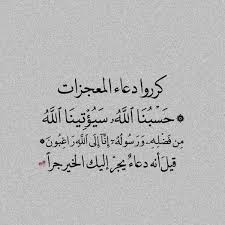 كرروا دعاء المعجزات
حَسْبُنَا ٱللَّهُ سَيُؤْتِينَا ٱللَّهُ
مِن فَضْلِهِۦ وَرَسُولُهُۥٓ إِنَّآ إِلَى ٱللَّهِ رَٰغِبُونَ
قيلَ أنه دعاءٌ يجرّ إليك الخير جراً